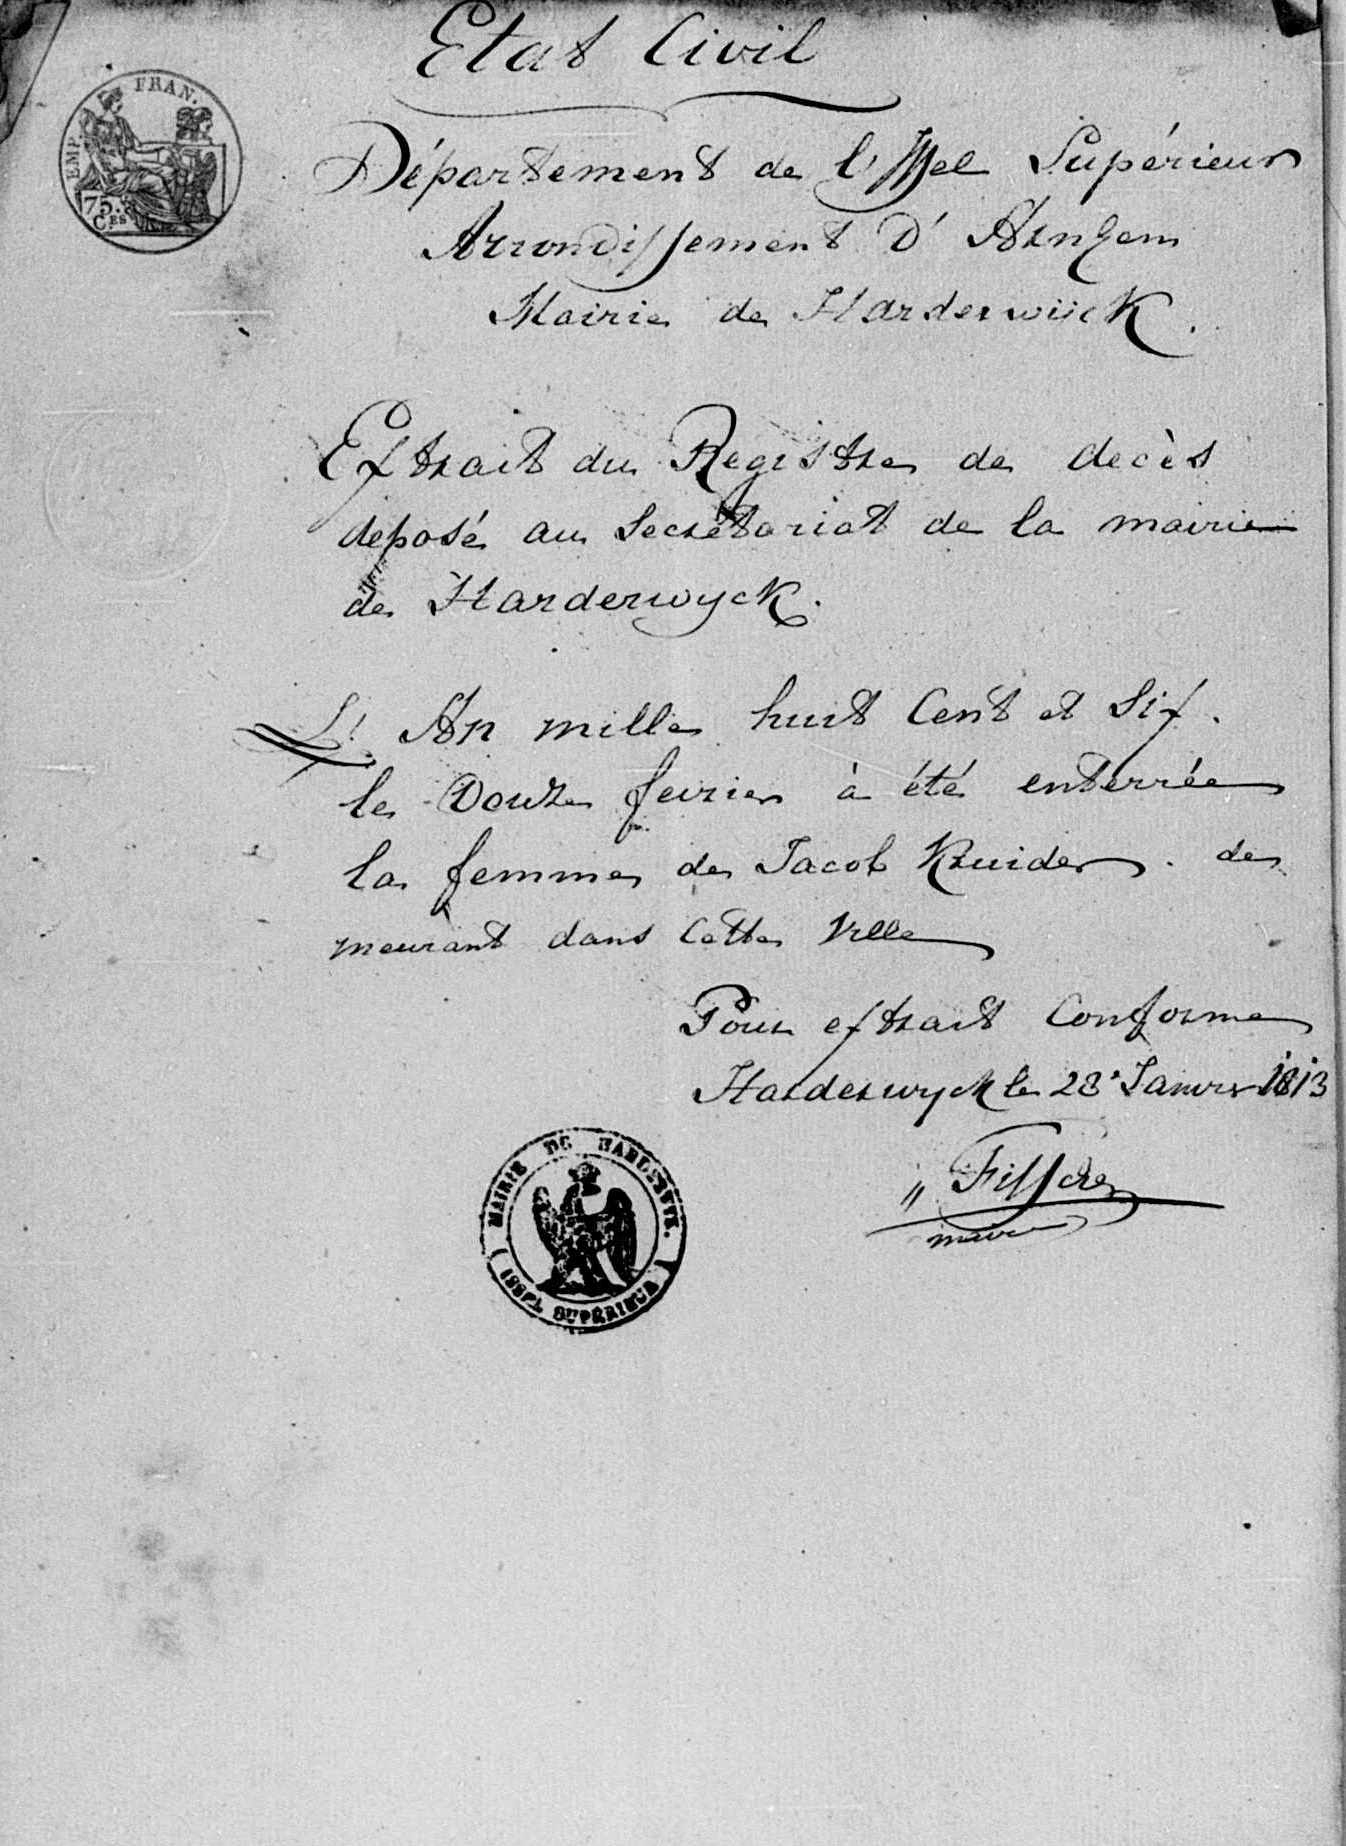 Etat Civil
EMP. FRAN.
75.
C.ES
Département de l'Yssel Supérieur
Arrondissement D'Arnhem
Mairie de Harderwijck.
Extrait du Registre de decès
deposé au Secrétariat de la mairie
de Harderwyck.
L'An mille huit Cent et Six.
le Douze fevrier à été enterrée
la femme de Jacob Kruider. de
meurant dans Cette Ville
Pour extrait Conforme
Harderwyck le 28e Janvier 1813
maire
MAIRIE DE HARDERWYK.
ISSEL SUPÉRIEUR